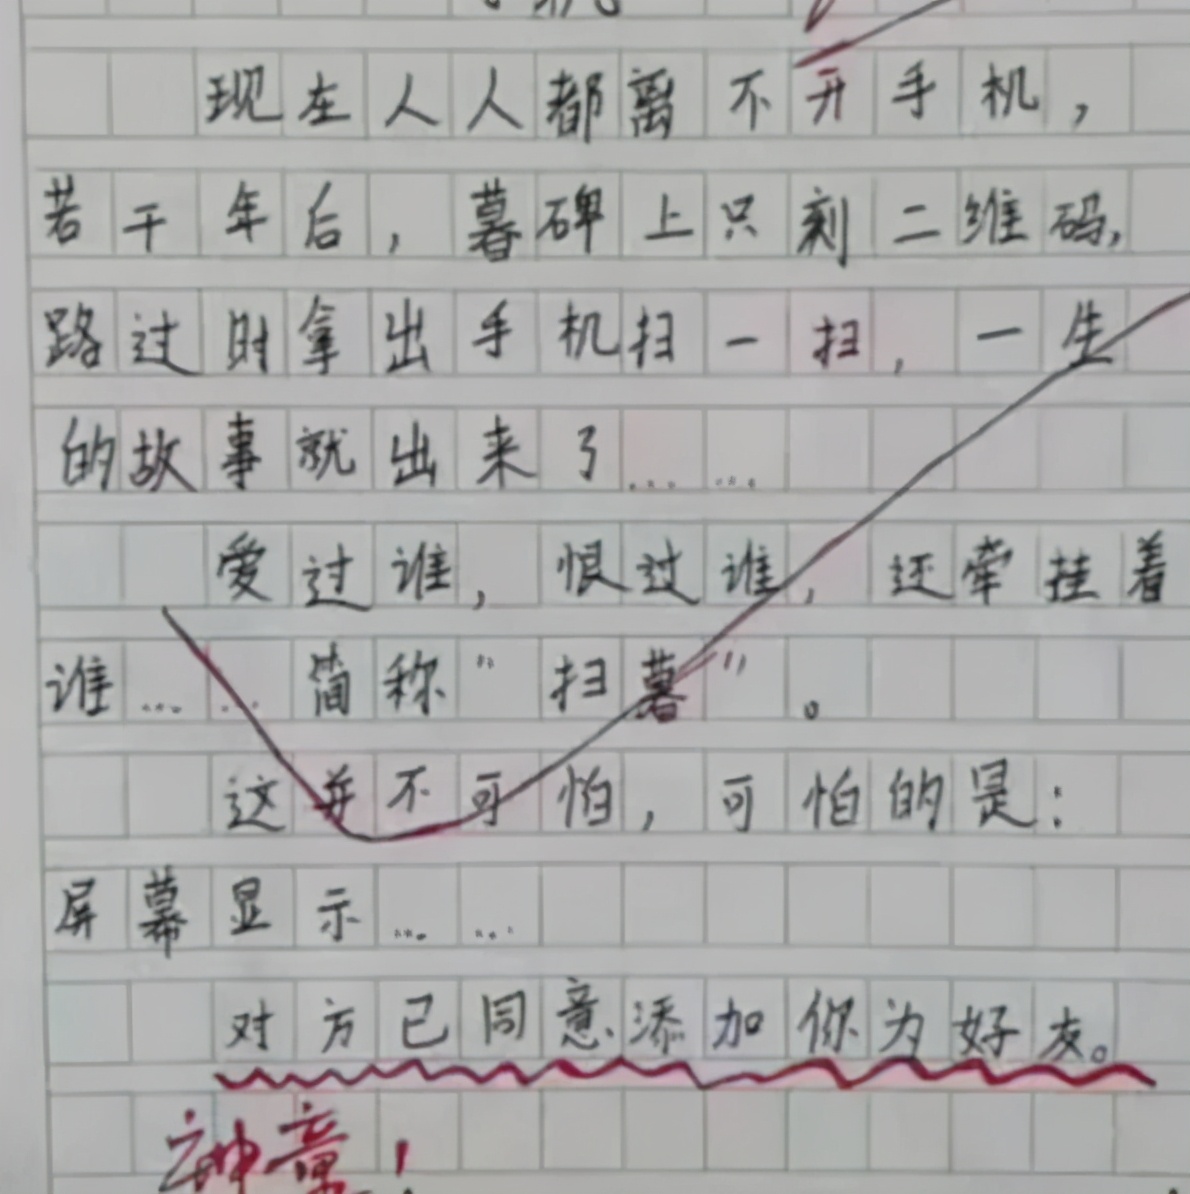 现在人人都离不开手机，
若干年后，暮碑上只刻二维码，
路过时拿出手机扫一扫，一生
的故事就出来了……
爱过谁，恨过谁，还牵挂着
谁……简称“扫暮”。
这并不可怕，可怕的是：
屏幕显示……
对方已同意添加你为好友。
神童！